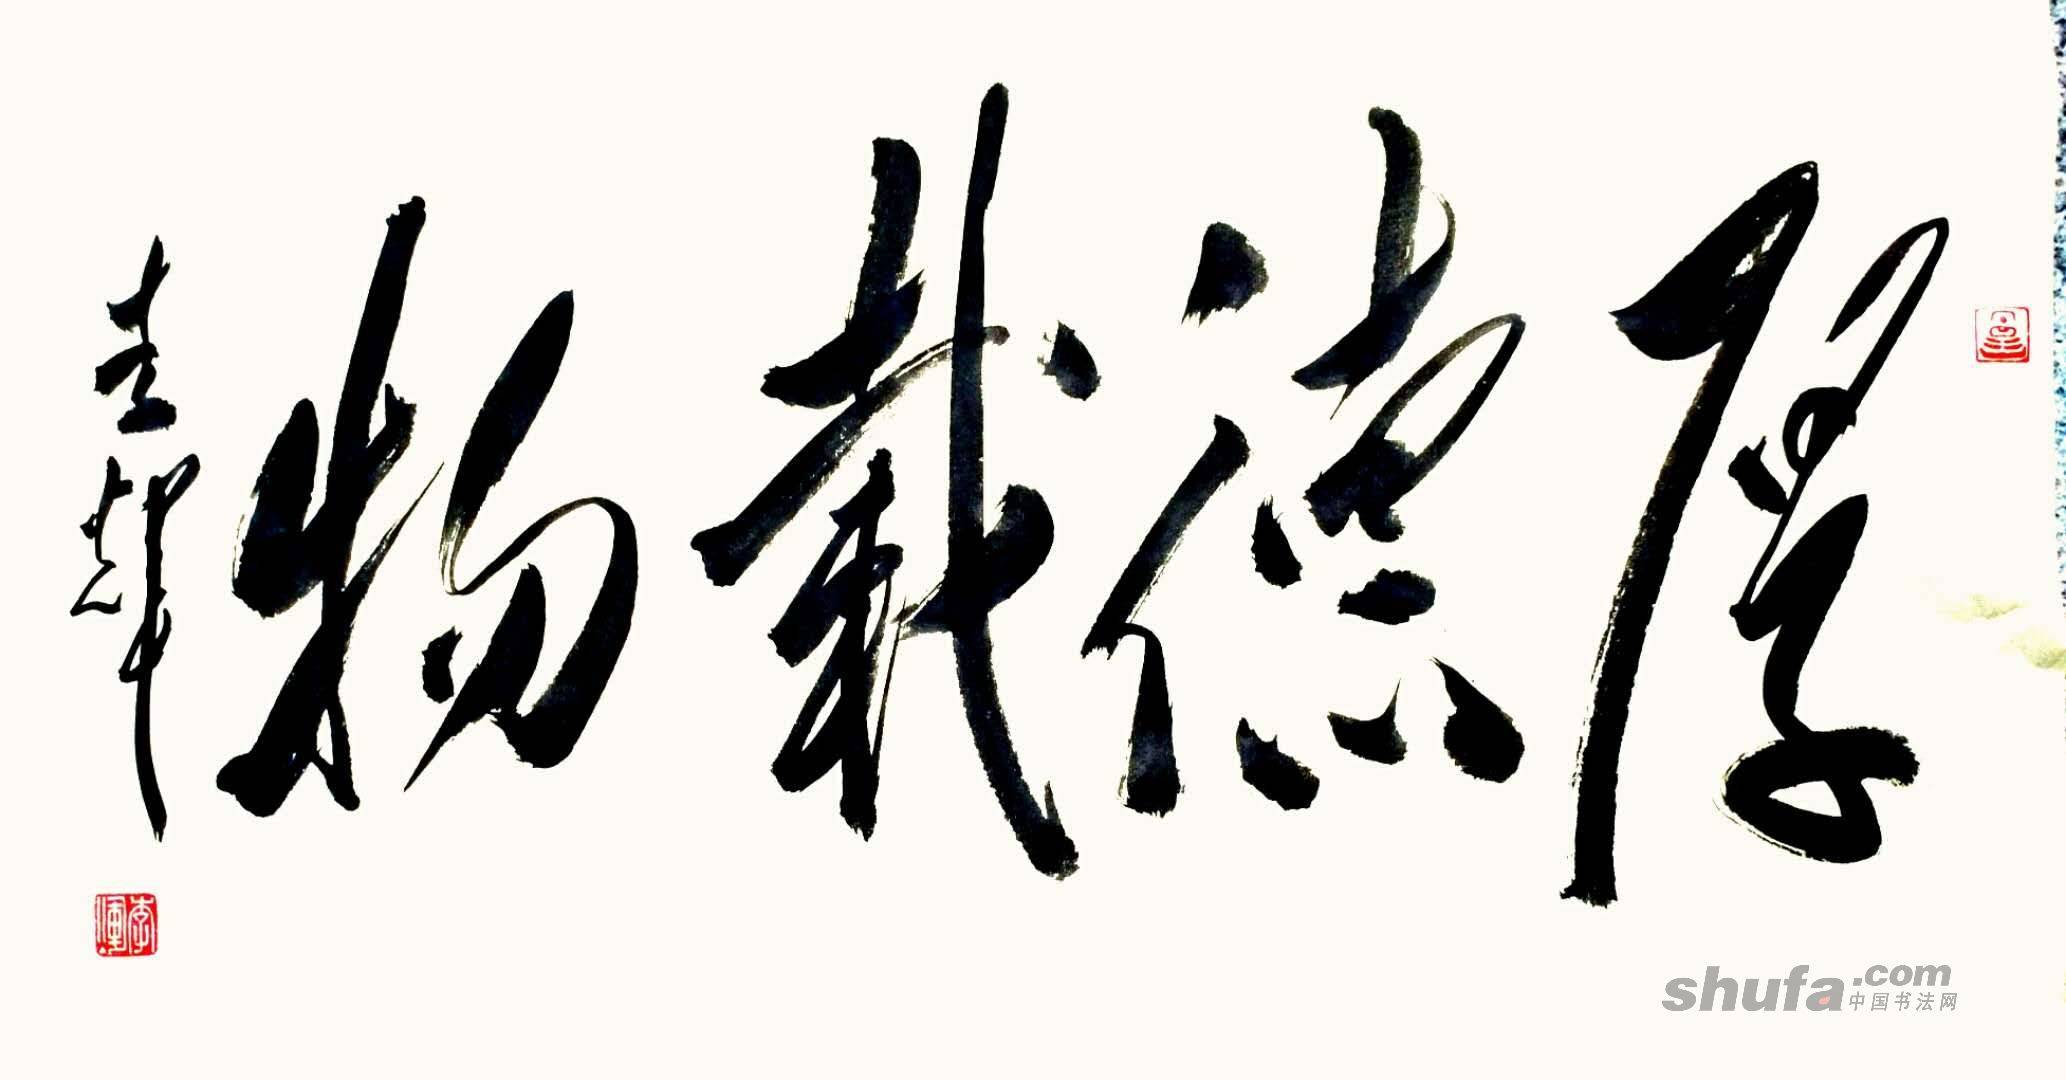 厚德载物
shufa.com
中国书法网